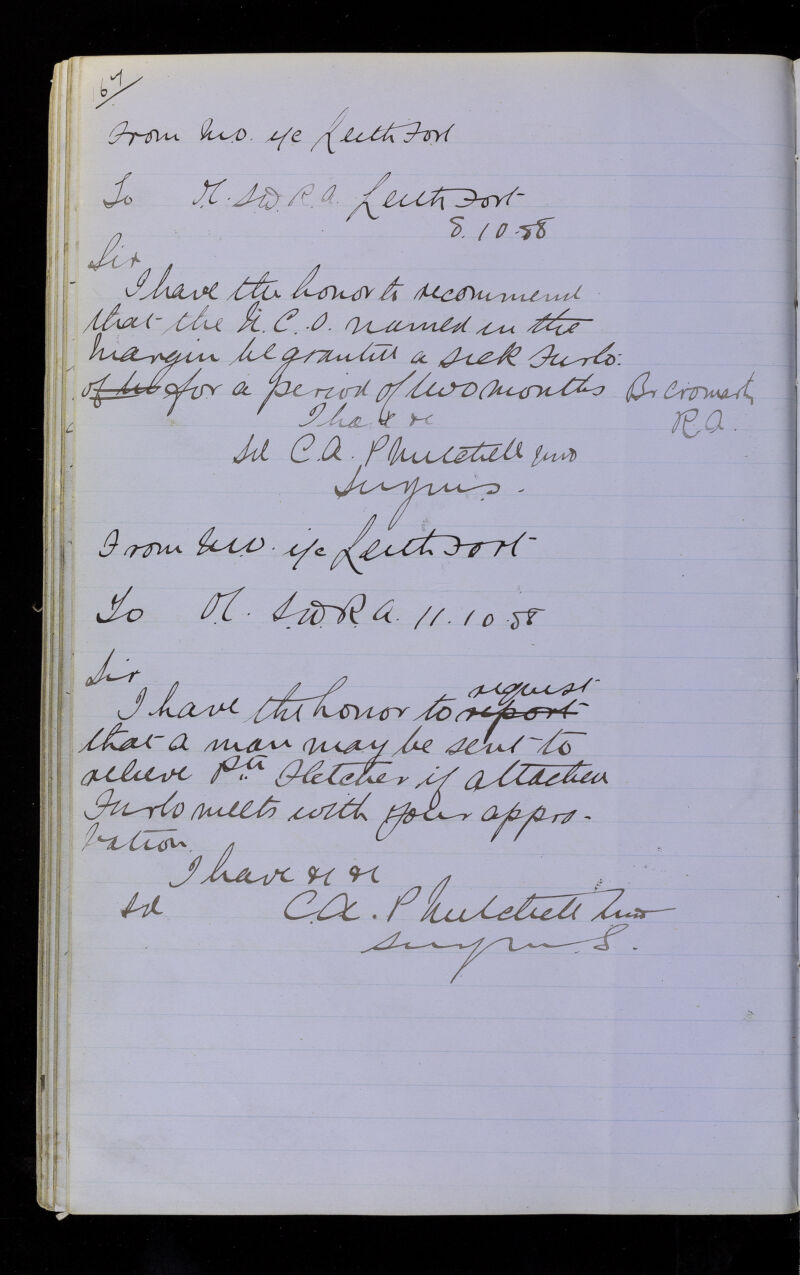 167
From M.O. i/c Leith Fort
To O.C. S.D. R.A. Leith Fort
8.10.88
Sir
I have the honor to recommend
that the N.C.O. named in the
Margin be granted a sick Furlo:
of two for a period of two months Br Cromarty
I ha & &c R.A.
Sd C.A. P Mitchell
Surgeon
From M.O. i/c Leith Fort
To O.C. S.D. R.A. 11.10.88
Sir
I have the honor to report request
that a man may be sent to
relieve Pte Fletcher if attached
Furlo meets with your appro-
bation.
I have &c &c
Sd C.A. P Mitchell
Surgeon